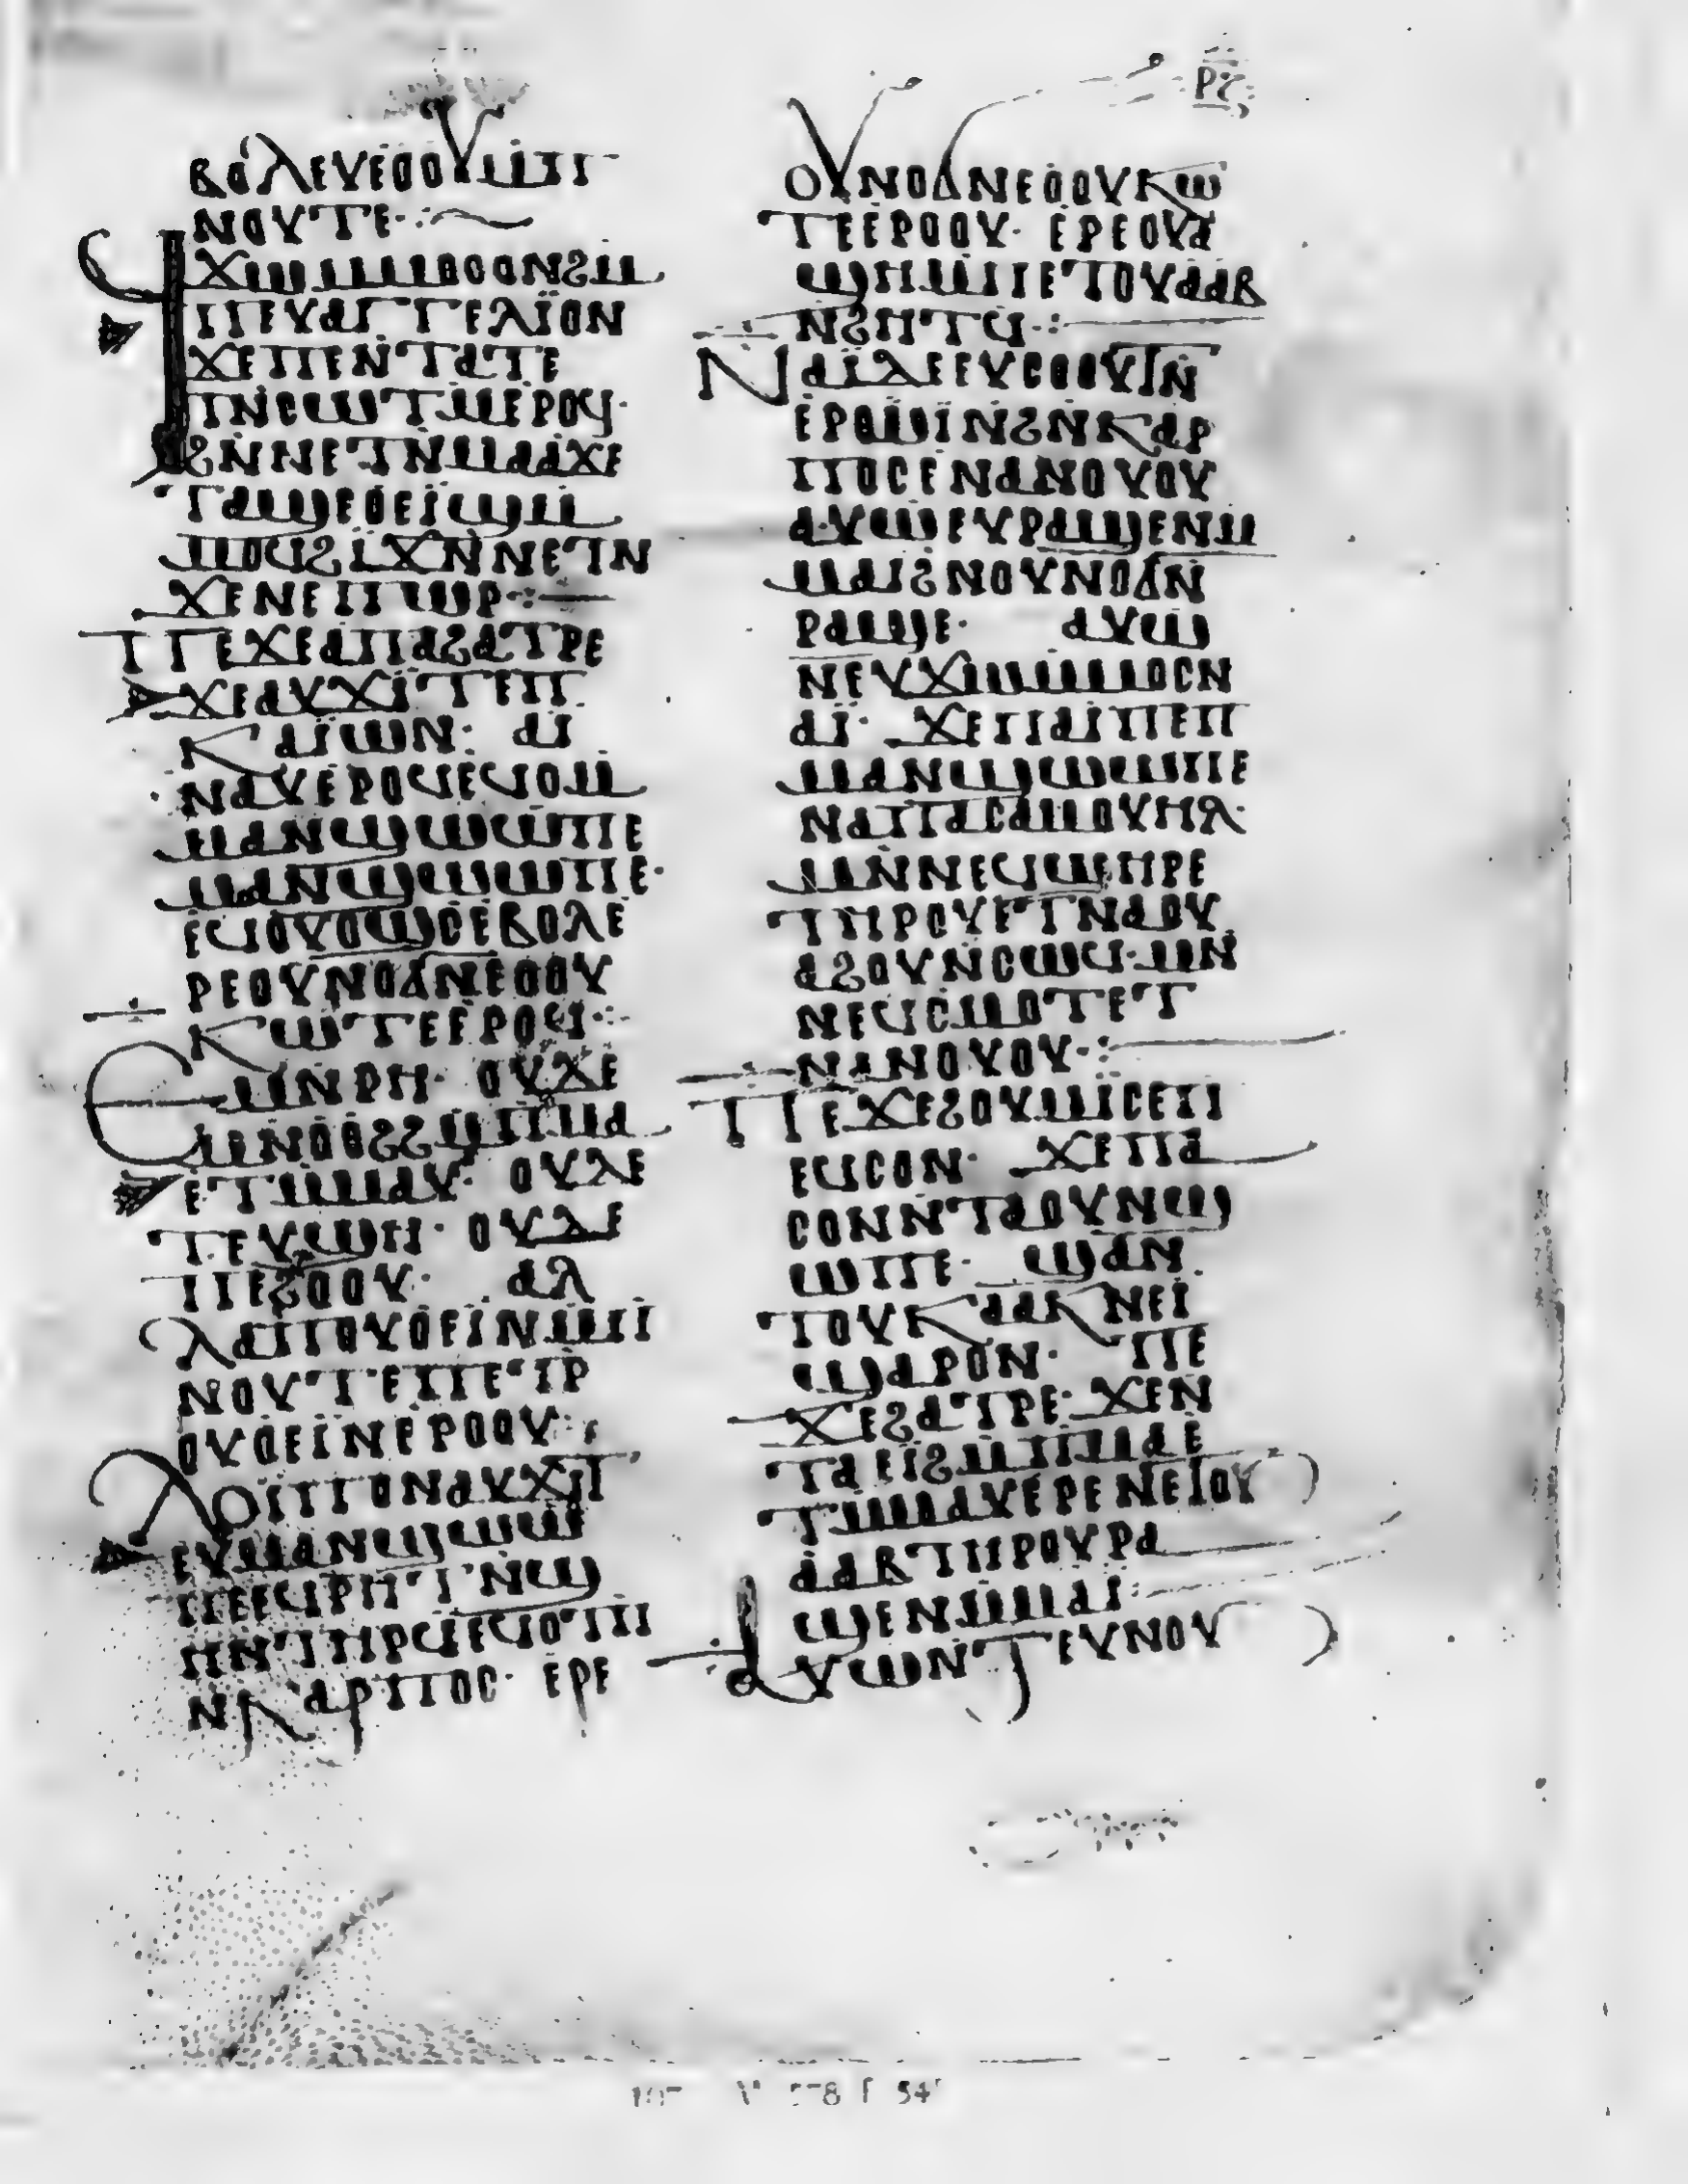 ⲣⲍ
ⲃⲟⲗⲉⲩⲉⲟⲟⲩⲙⲡ
ⲛⲟⲩⲧⲉ·
ϥϫⲱⲙⲙⲟⲥⲟⲛϩⲙ
ⲡⲉⲩⲁⲅⲅⲉⲗⲓⲟⲛ
ϫⲉⲡⲉⲛⲧⲁⲧⲉ
ⲧⲛⲥⲱⲧⲙⲉⲣⲟϥ·
ϩⲛⲛⲉⲧⲛⲙⲁⲁϫⲉ
ⲧⲁϣⲉⲟⲉⲓϣⲙ
ⲙⲟϥϩⲓϫⲛⲛⲉⲧⲛ
ϫⲉⲛⲉⲡⲱⲣ·
ⲡⲉϫⲉⲁⲡⲁϩⲁⲧⲣⲉ
ϫⲉⲁⲩϫⲓⲧⲉⲡ
ⲕⲁⲓⲱⲛ· ⲁⲓ
ⲛⲁⲩⲉⲣⲟϥⲉϥⲟⲙ
ⲙⲁⲛϣⲱⲱⲡⲉ
ⲙⲁⲛϣⲱⲱⲡⲉ·
ⲉϥⲟⲩⲟϣⲥⲉⲃⲟⲗⲉ
ⲣⲉⲟⲩⲛⲟϭⲛⲉⲟⲟⲩ
ⲕⲱⲧⲉⲉⲣⲟϥ·
ⲉⲙⲛⲣⲏ· ⲟⲩⲇⲉ
ⲙⲛⲟⲟϩϩⲙⲡⲙⲁ
ⲉⲧⲙⲙⲁⲩ· ⲟⲩⲇⲉ
ⲧⲉⲩϣⲏ· ⲟⲩⲇⲉ
ⲡⲉϩⲟⲟⲩ· ⲁⲗ
ⲗⲁⲡⲟⲩⲟⲉⲓⲛⲙⲡ
ⲛⲟⲩⲧⲉⲡⲉⲧⲣ
ⲟⲩⲟⲉⲓⲛⲉⲣⲟⲟⲩ·
ⲗⲟⲓⲡⲟⲛⲁⲩϫⲓⲧ
ⲉⲩⲙⲁⲛϣⲱⲱ
ⲡⲉⲉϥⲣⲏⲧⲛϣ
ⲏⲛⲧⲏⲣϥⲉϥⲟⲧⲡ
ⲛⲕⲁⲣⲡⲟⲥ· ⲉⲣⲉ
ⲟⲩⲛⲟϭⲛⲉⲟⲟⲩⲕⲱ
ⲧⲉⲉⲣⲟⲟⲩ· ⲉⲣⲉⲟⲩⲁ
ϣⲏⲙⲡⲉⲧⲟⲩⲁⲁⲃ
ⲛϩⲏⲧϥ·
ⲛⲁⲓⲇⲉⲉⲩⲥⲟⲟⲩⲧⲛ
ⲉⲣⲱⲓⲛϩⲛⲕⲁⲣ
ⲡⲟⲥⲉⲛⲁⲛⲟⲩⲟⲩ
ⲁⲩⲱⲉⲩⲣⲁϣⲉⲛⲙ
ⲙⲁⲓϩⲛⲟⲩⲛⲟϭⲛ
ⲣⲁϣⲉ· ⲁⲩⲱ
ⲛⲉⲩϫⲱⲙⲙⲟⲥⲛ
ⲁⲓ· ϫⲉⲡⲁⲓⲡⲉⲡ
ⲙⲁⲛϣⲱⲱⲡⲉ
ⲛⲁⲡⲁⲥⲁⲙⲟⲩⲏⲗ·
ⲙⲛⲛⲉϥϣⲉⲏⲣⲉ
ⲧⲏⲣⲟⲩⲉⲧⲛⲁⲟⲩ
ⲁϩⲟⲩⲛⲥⲱϥ·ⲙⲛ
ⲛⲉϥⲥⲙⲟⲧⲉⲧ
ⲛⲁⲛⲟⲩⲟⲩ·
ⲡⲉϫⲉϩⲟⲩⲙⲓⲥⲉⲡ
ⲉϥⲥⲟⲛ· ϫⲉⲡⲁ
ⲥⲟⲛⲛⲧⲁⲟⲩⲛϣ
ⲱⲡⲉ· ϣⲁⲛ
ⲧⲟⲩⲕⲁⲁⲕⲛⲉⲓ
ϣⲁⲣⲟⲛ· ⲡⲉ
ϫⲉϩⲁⲧⲣⲉ· ϫⲉⲛ
ⲧⲁⲉⲓϩⲙⲡⲙⲁⲉ
ⲧⲙⲙⲁⲩⲉⲣⲉⲛⲉⲧⲟⲩ
ⲁⲁⲃⲧⲏⲣⲟⲩⲣⲁ
ϣⲉⲛⲙⲙⲁⲓ·
ⲁⲩⲱⲛⲧⲉⲩⲛⲟⲩ